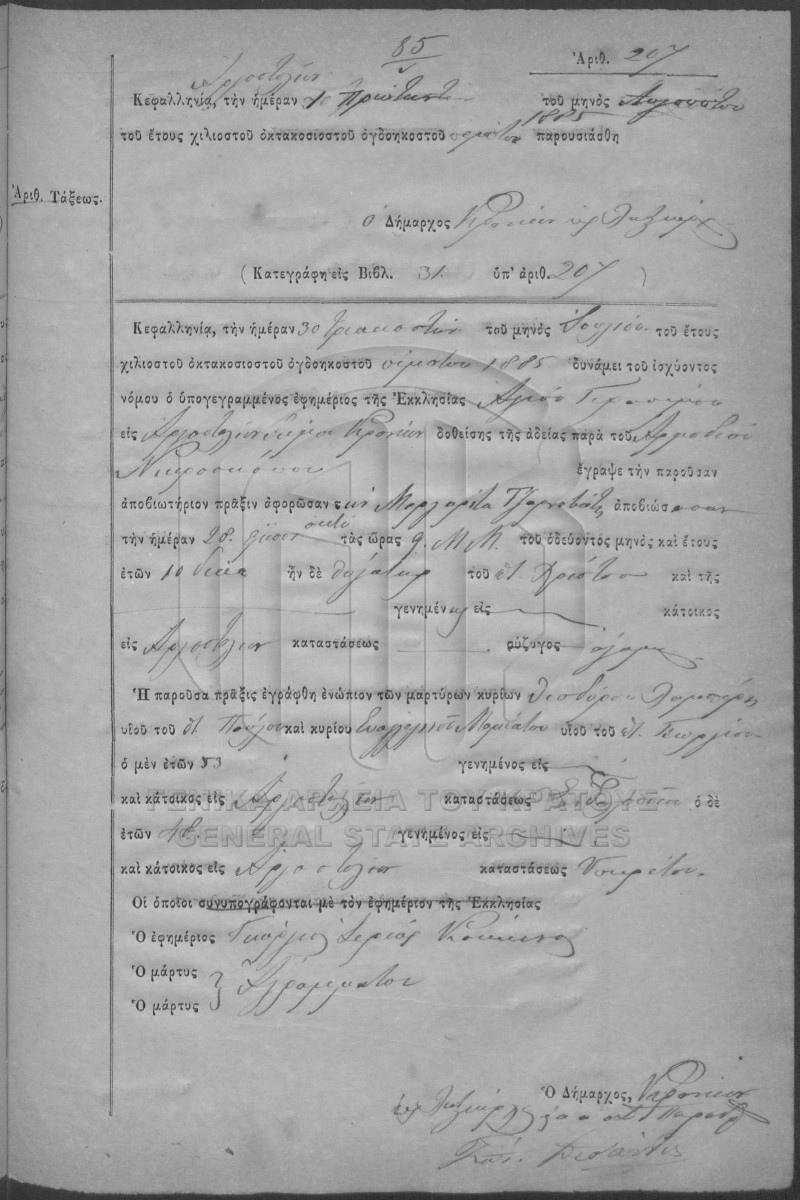 85
Ἀριθ. 207
Ἀργοστόλιον
Κεφαλληνίᾳ, τὴν ἡμέραν 1η Πρώτην τοῦ μηνὸς Αὐγούστου
1885
τοῦ ἔτους χιλιοστοῦ ὀκτακοσιοστοῦ ὀγδοηκοστοῦ πέμπτου παρουσιάσθη
Ἀριθ. Τάξεως.
ὁ Δήμαρχος Κρανίων
(Κατεγράφη εἰς Βιβλ. 31 ὑπ' ἀριθ. 207)
Κεφαλληνίᾳ, τὴν ἡμέραν 30 τριακοστὴν τοῦ μηνὸς Ἰουλίου τοῦ ἔτους
χιλιοστοῦ ὀκτακοσιοστοῦ ὀγδοηκοστοῦ πέμπτου 1885 δυνάμει τοῦ ἰσχύοντος
νόμου ὁ ὑπογεγραμμένος ἐφημέριος τῆς Ἐκκλησίας Ἁγίου Γερασίμου
εἰς Ἀργοστόλιον δήμου Κρανίων δοθείσης τῆς ἀδείας παρὰ τοῦ Ἁρμοδίου
Νεκροσκόπου ἔγραψε τὴν παροῦσαν
ἀποβιωτήριον πρᾶξιν ἀφορῶσαν τὴν Μαργαρίτα ἀποβιώσασαν
ὀκτὼ
τὴν ἡμέραν 28 εἴκοσι τὰς ὥρας 9. Μ.Μ. τοῦ ὁδεύοντος μηνὸς καὶ ἔτους
ἐτῶν 10 δέκα ἦν δὲ θυγάτηρ τοῦ Χρίστου καὶ τῆς
γενημένη εἰς κάτοικος
εἰς Ἀργοστόλιον καταστάσεως σύζυγος ἄγαμος
Ἡ παροῦσα πρᾶξις ἐγράφθη ἐνώπιον τῶν μαρτύρων κυρίων Θεοδώρου
υἱοῦ τοῦ Παύλου καὶ κυρίου Εὐαγγελινοῦ υἱοῦ τοῦ Γεωργίου
ὁ μὲν ἐτῶν 53 γενημένος εἰς
καὶ κάτοικος εἰς Ἀργοστόλιον καταστάσεως ὁ δὲ
ΓΕΝΙΚΑ ΑΡΧΕΙΑ ΤΟΥ ΚΡΑΤΟΥΣ
ἐτῶν 48. γενημένος εἰς
GENERAL STATE ARCHIVES
καὶ κάτοικος εἰς Ἀργοστόλιον καταστάσεως Ὑπηρέτου.
Οἱ ὁποῖοι συνυπογράφονται μὲ τὸν ἐφημέριον τῆς Ἐκκλησίας
Ὁ ἐφημέριος Γεώργιος Ἱερεὺς
Ὁ μάρτυς
Ἀγράμματοι
Ὁ μάρτυς
Ὁ Δήμαρχος, Κρανίων